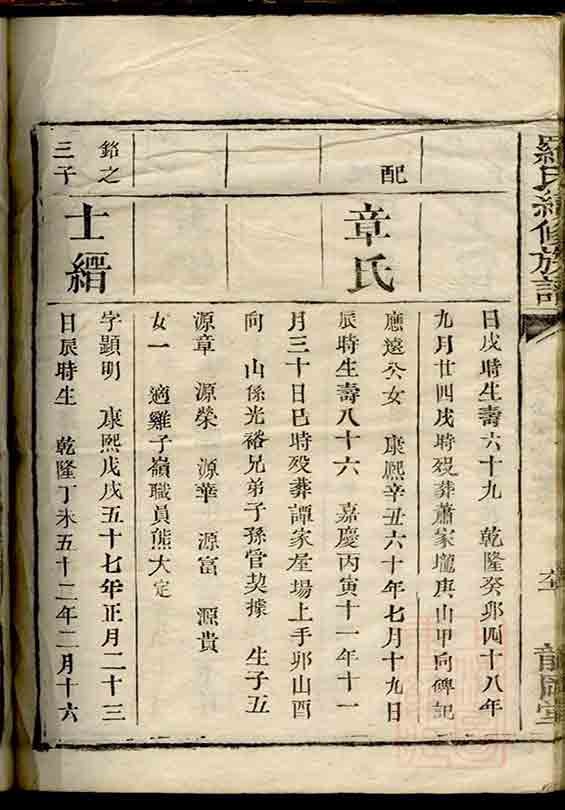 羅氏續修族譜
日戌時生壽六十九 乾隆癸卯四十八年
九月廿四戌時殁葬蕭家壠庚山甲向碑記
配
章氏
應遠公女 康熙辛丑六十年七月十九日
辰時生壽八十六 嘉慶丙寅十一年十一
月三十日巳時殁葬譚家屋場上手卯山酉
向 山係光裕兄弟子孫管契據 生子五
源章 源榮 源華 源富 源貴
女一 適雞子嶺職員熊大定
銘之
三子
士縉
字顯明 康熙戊戌五十七年正月二十三
日辰時生 乾隆丁未五十二年二月十六